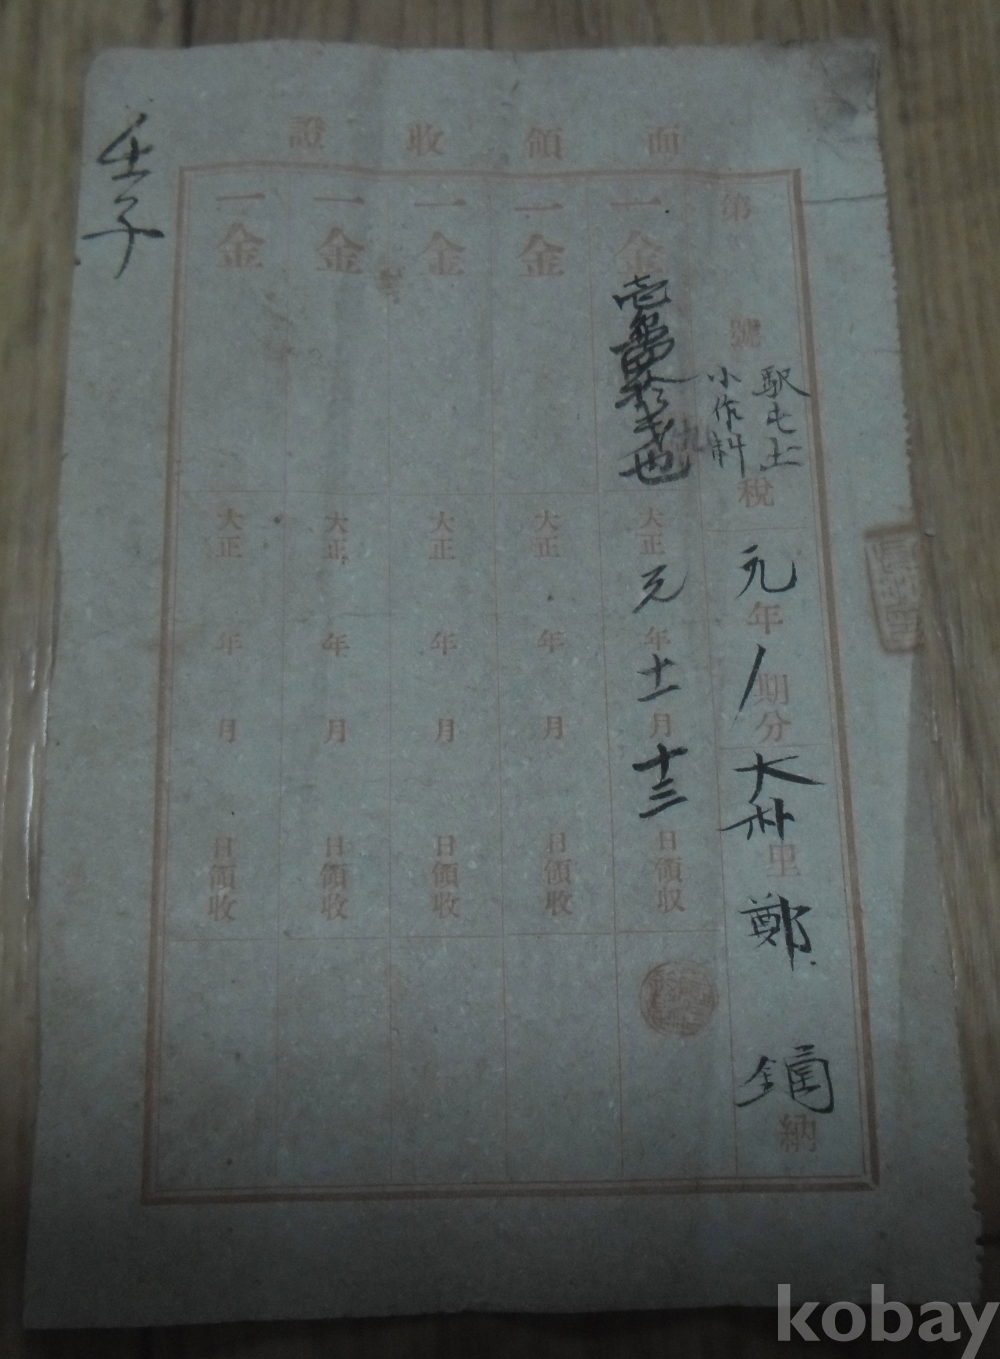 面領收證
第 號 駅屯土 小作料 稅 元年 1 期分 大朴里 鄭 鎬 納
一金 大正 元年 十一月 十三日領収
一金 大正 年 月 日領收
一金 大正 年 月 日領收
一金 大正 年 月 日領收
一金 大正 年 月 日領收
壬子
kobay